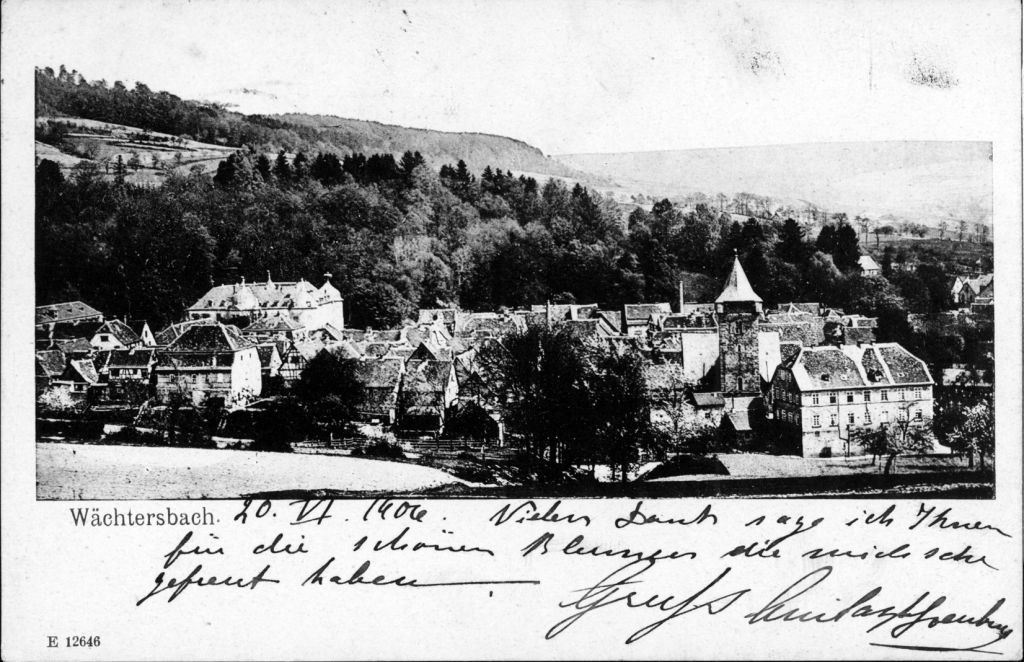 Wächtersbach. 20. VI. 1906. Vielen Dank sage ich Ihnen
für die schönen Blumen die mich sehr
gefreut haben
Gruss
E 12646